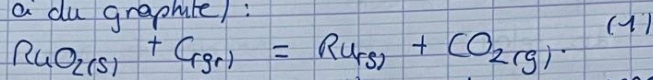 à du graphite) :
RuO2(s) + C(gr) = Ru(s) + CO2(g). (1)